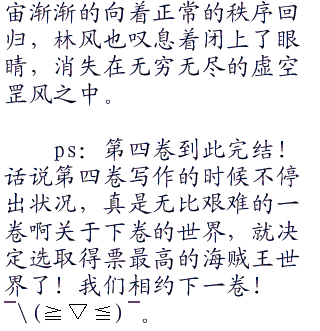 宙渐渐的向着正常的秩序回
归，林风也叹息着闭上了眼
睛，消失在无穷无尽的虚空
罡风之中。
ps：第四卷到此完结！
话说第四卷写作的时候不停
出状况，真是无比艰难的一
卷啊关于下卷的世界，就决
定选取得票最高的海贼王世
界了！我们相约下一卷！
¯\(≧▽≦)¯。